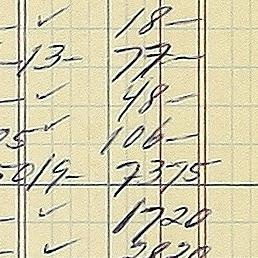 ✓ 18-
-13- 77-
- ✓ 48-
05 ✓ 106-
5019- 7375
- ✓ 1720
- ✓ 2820